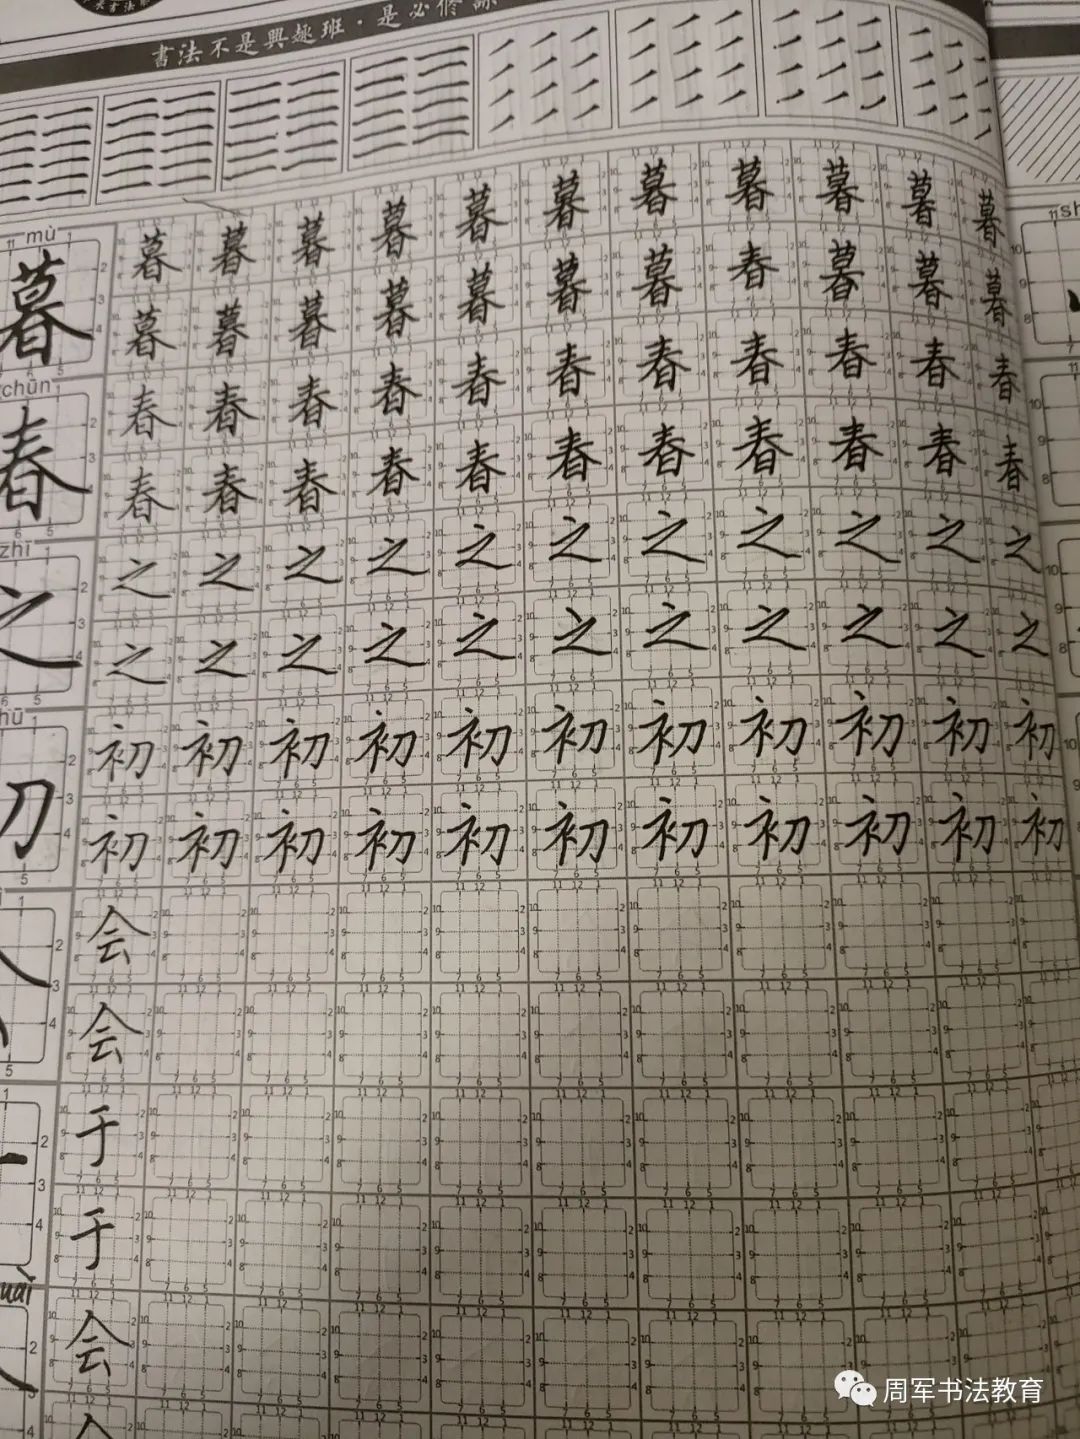 書法不是興趣班·是必修課
mù
暮 暮 暮 暮 暮 暮 暮 暮 暮 暮 暮 暮
暮 暮 暮 暮 暮 暮 暮 春 暮 暮 暮
chūn
春 春 春 春 春 春 春 春 春 春 春 春
春 春 春 春 春 春 春 春 春 春 春
zhī
之 之 之 之 之 之 之 之 之 之 之 之
之 之 之 之 之 之 之 之 之 之 之
初 初 初 初 初 初 初 初 初 初 初
初 初 初 初 初 初 初 初 初 初 初
会
会
于
于
会
周军书法教育